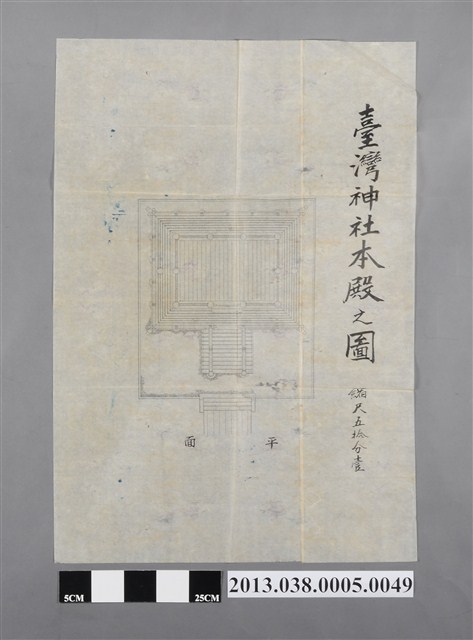 臺灣神社本殿之圖
縮尺五拾分壹
平面
5CM
25CM
2013.038.0005.0049